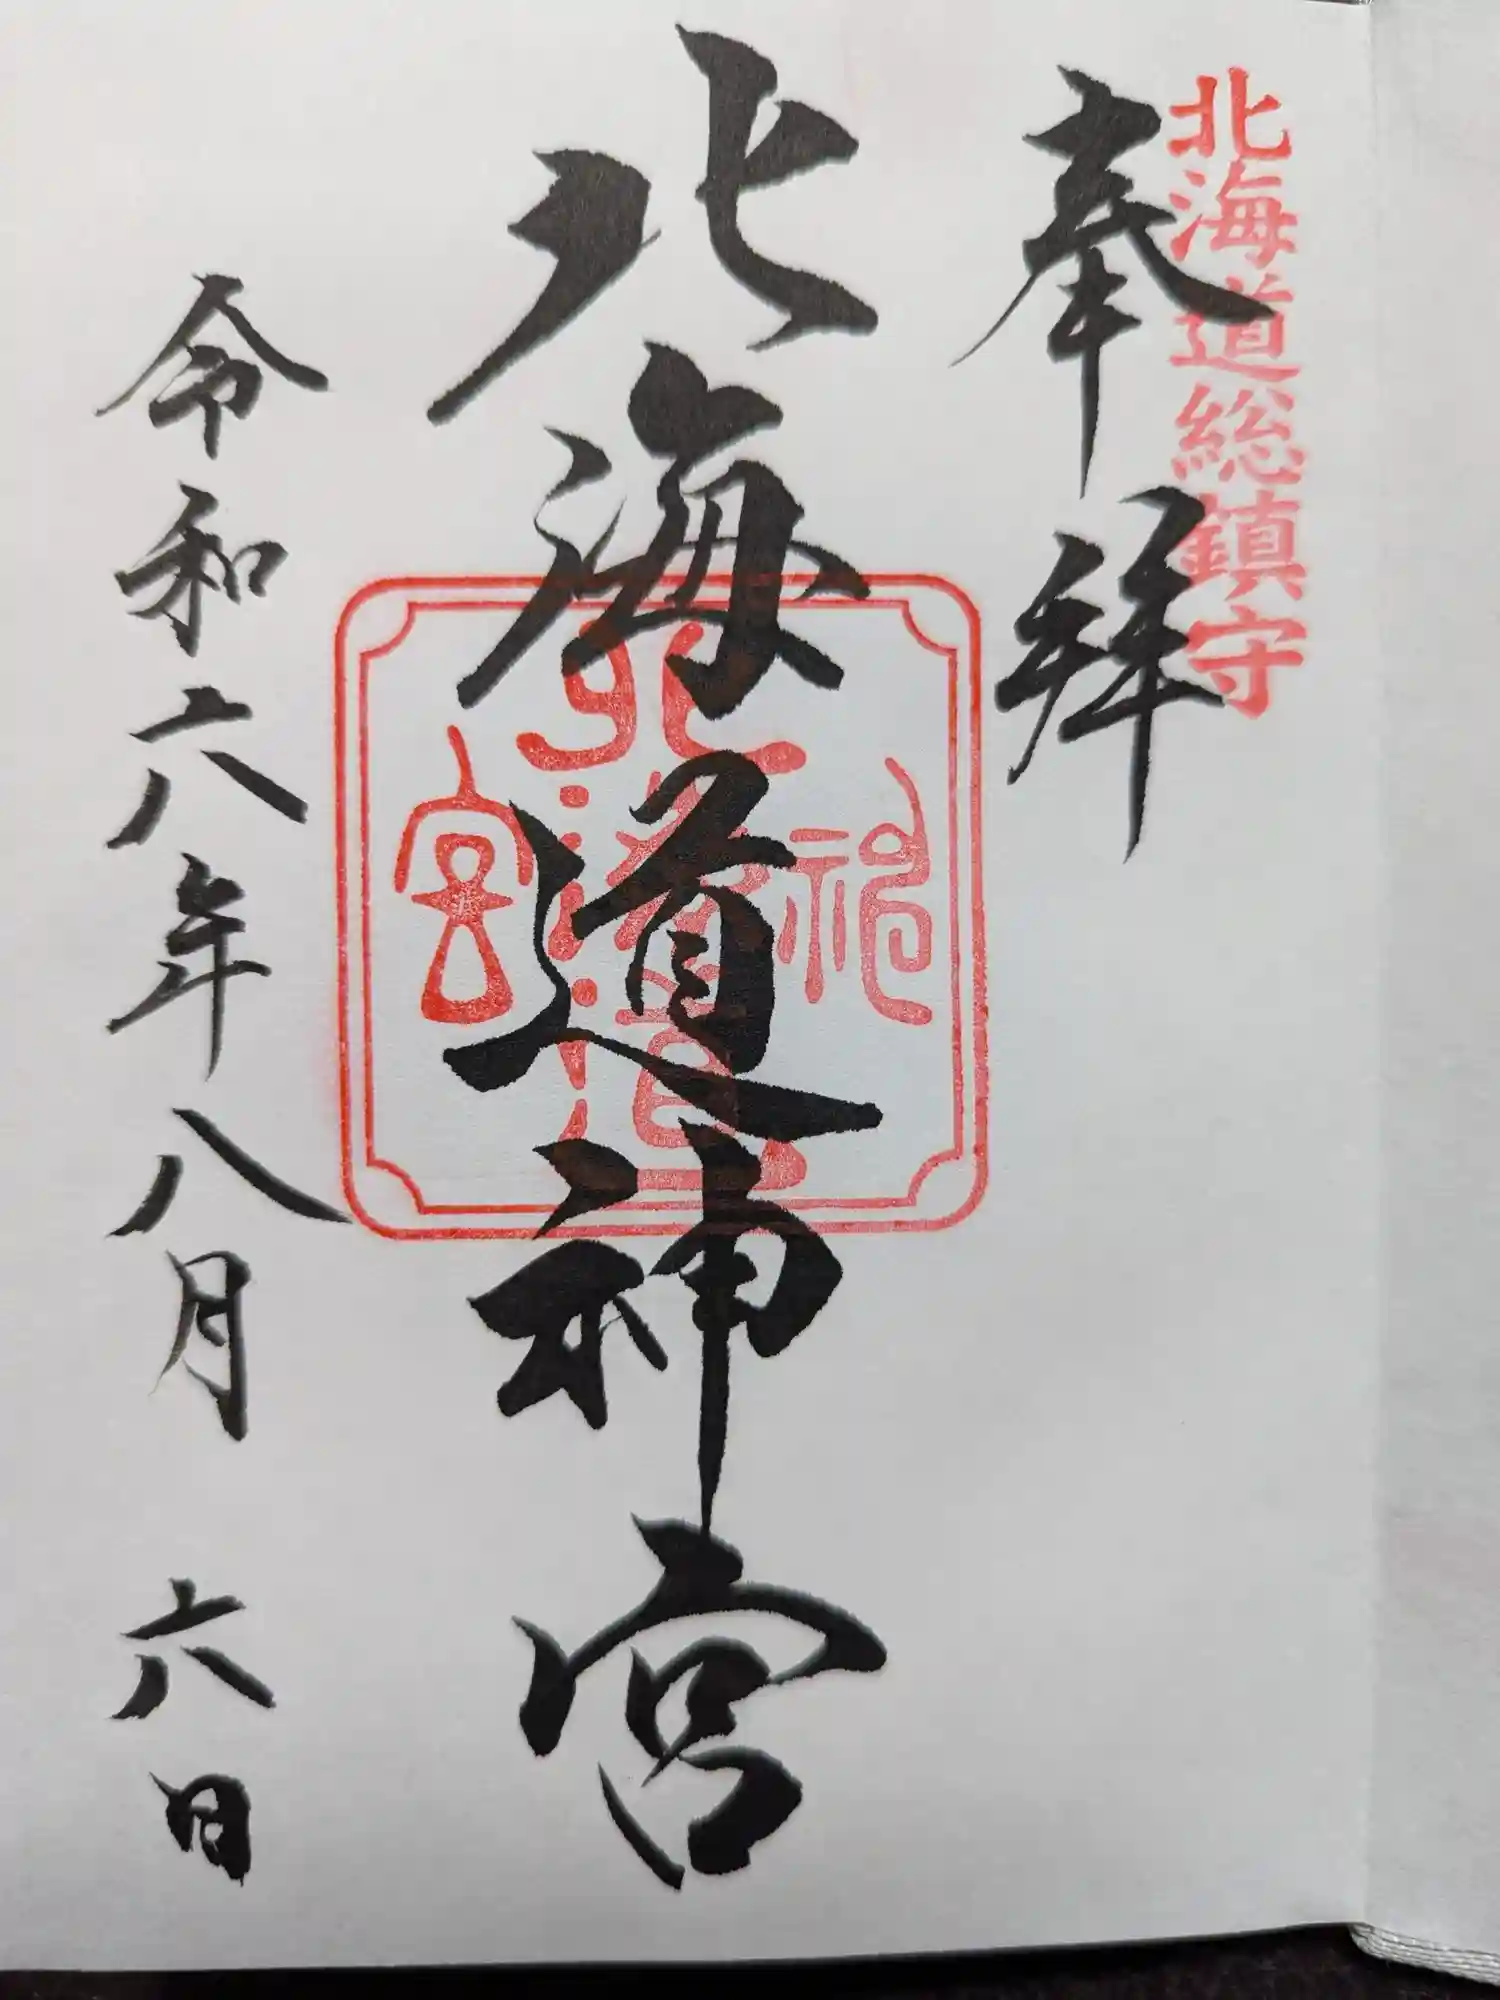 北海道総鎮守
奉拝
北海道神宮
北海道神宮
令和六年八月六日